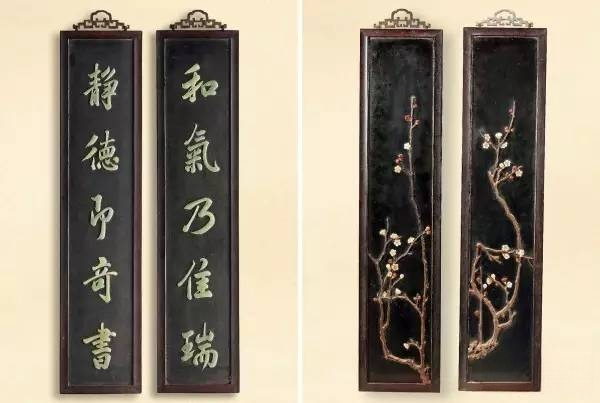 和氣乃佳瑞
静德即奇書